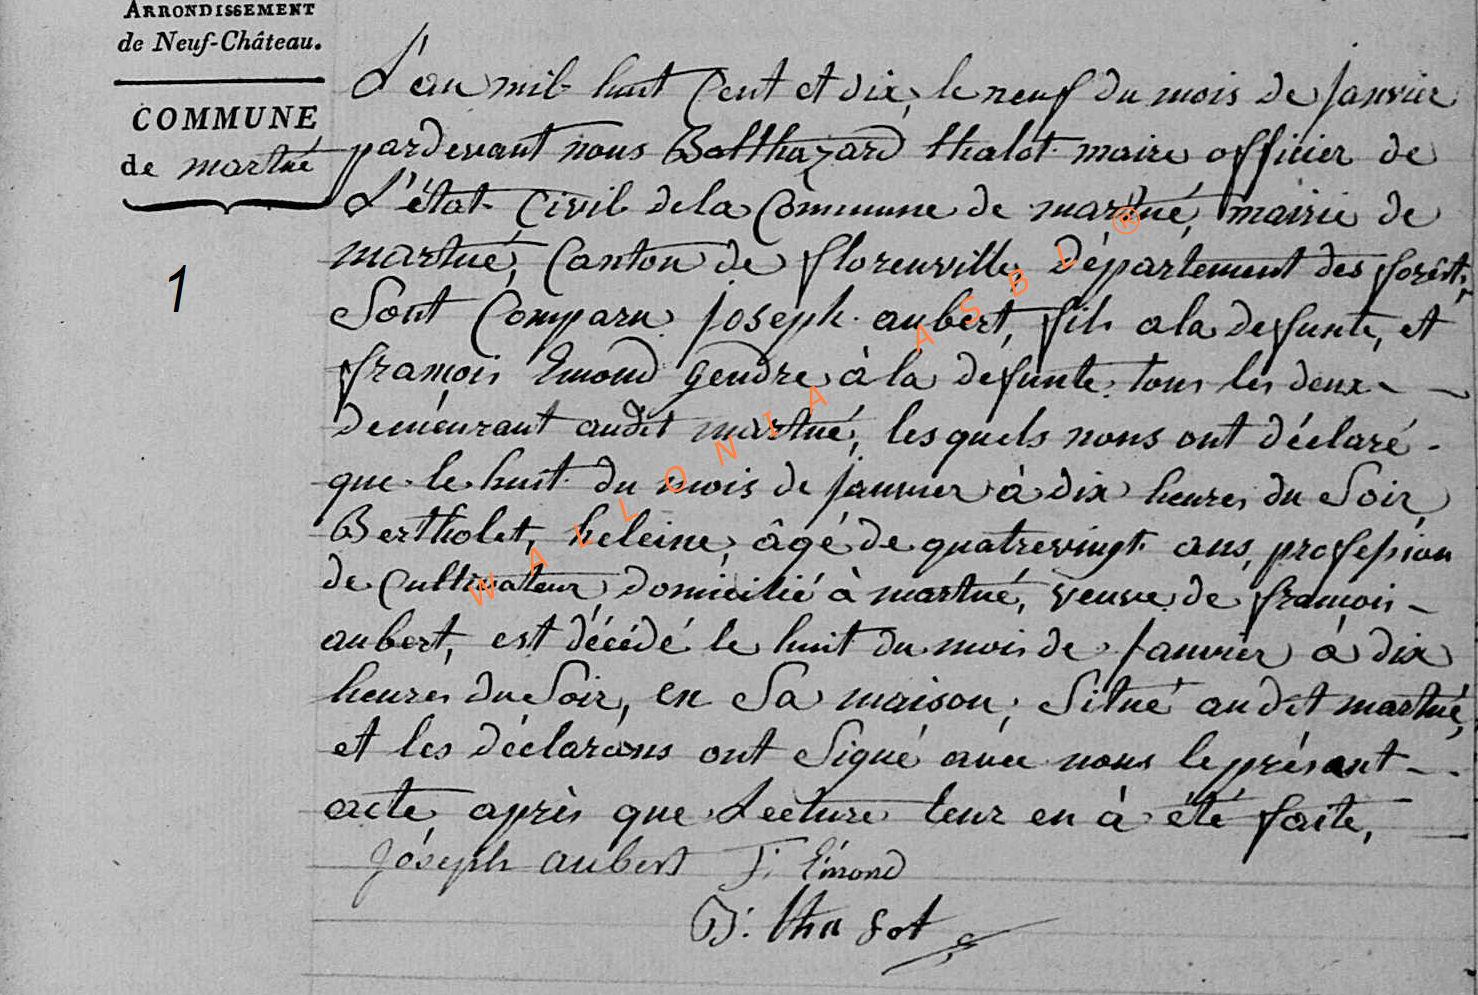 ARRONDISSEMENT
de Neuf-Château.
COMMUNE
de martué
1
L'an mil huit Cent et dix, le neuf du mois de Janvier
pardevant nous Balthazard thalot maire officier de
L'état Civil dela Commune de martué, mairie de
martué, Canton de florenville, Département des forêts,
Sont Comparu joseph aubert, fils ala defunte, et
françois Emond gendre à la defunte, tous les deux
demeurant audit martué, lesquels nous ont déclaré
que le huit du mois de janvier à dix heures du Soir
Bertholet, heleine, âgé de quatrevingt ans, profession
de Cultivateur domicilié à martué, veuve de françois
aubert, est décédé le huit du mois de Janvier à dix
heures du Soir, en Sa maison, Situé audit martué,
et les déclarans ont Signé avec nous le présent
acte après que Lecture leur en à été faite,
joseph aubert F: Emond
B: thalot
WALLONIA ASBL ®